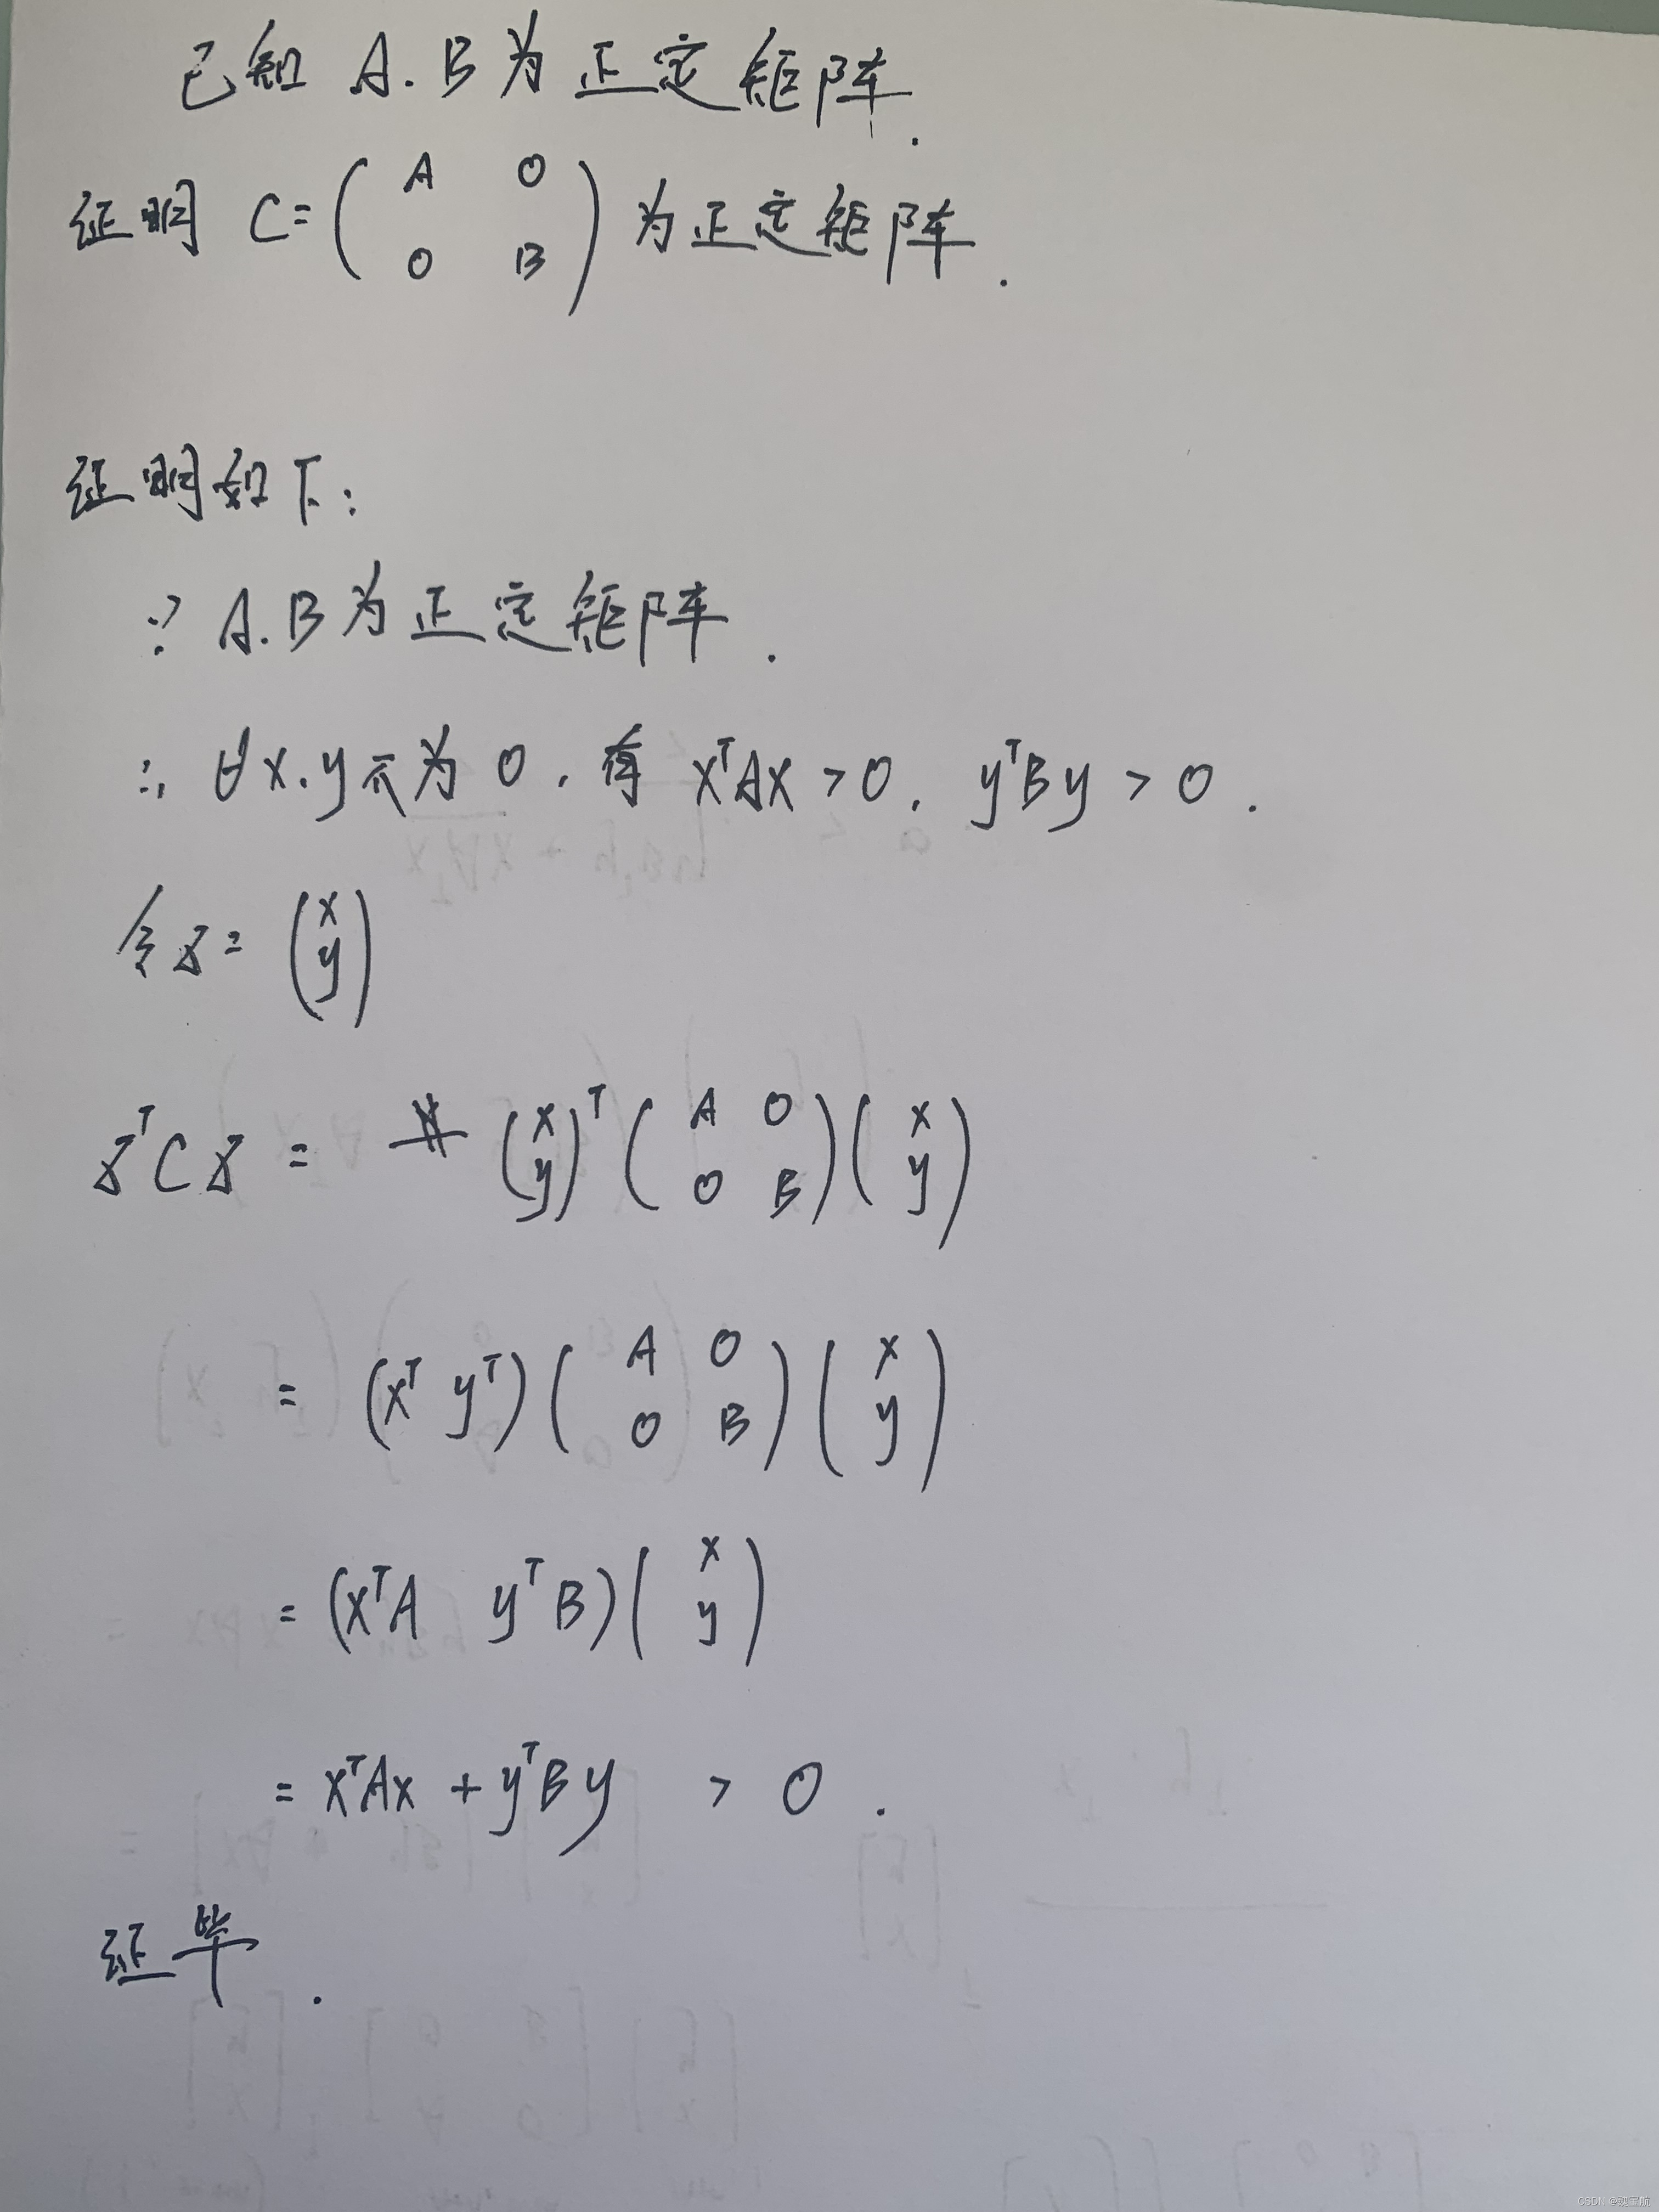 已知 A.B为正定矩阵.
证明 C=( A 0
0 B ) 为正定矩阵.
证明如下:
∵ A.B为正定矩阵.
∴ ∀x.y不为0,有 xᵀAx>0, yᵀBy>0.
令z=(x
y)
zᵀCz = (x
y)ᵀ( A 0
0 B )( x
y )
= (xᵀ yᵀ)( A 0
0 B )( x
y )
= (xᵀA yᵀB)( x
y )
= xᵀAx + yᵀBy > 0.
证毕.
CSDN @魏宝航